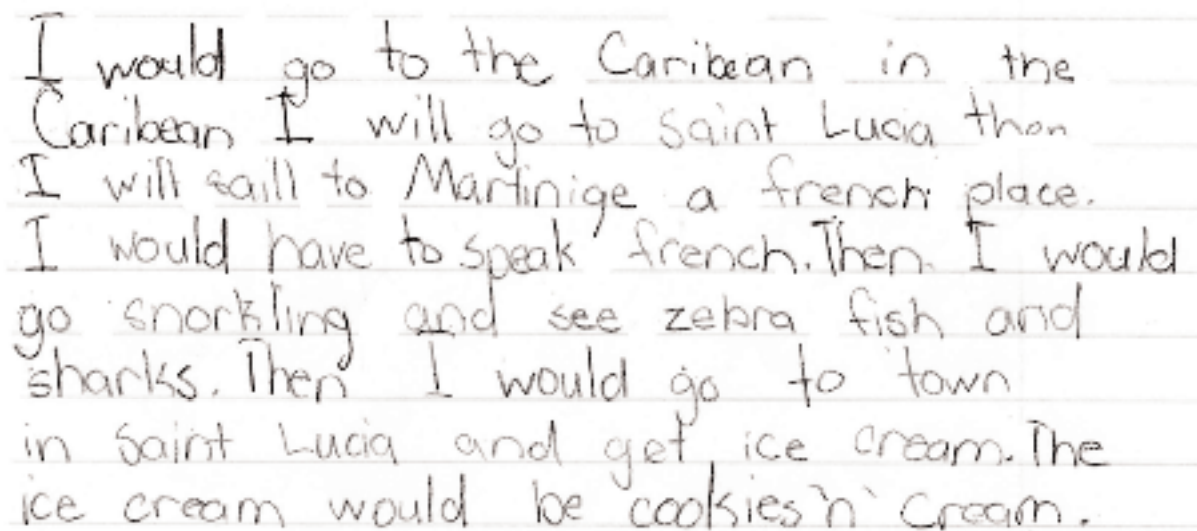 I would go to the Caribean in the
Caribean I will go to saint Lucia then
I will saill to Martinige a french place.
I would have to speak french. Then I would
go snorkling and see zebra fish and
sharks. Then I would go to town
in saint Lucia and get ice cream. The
ice cream would be cookies 'n' cream.